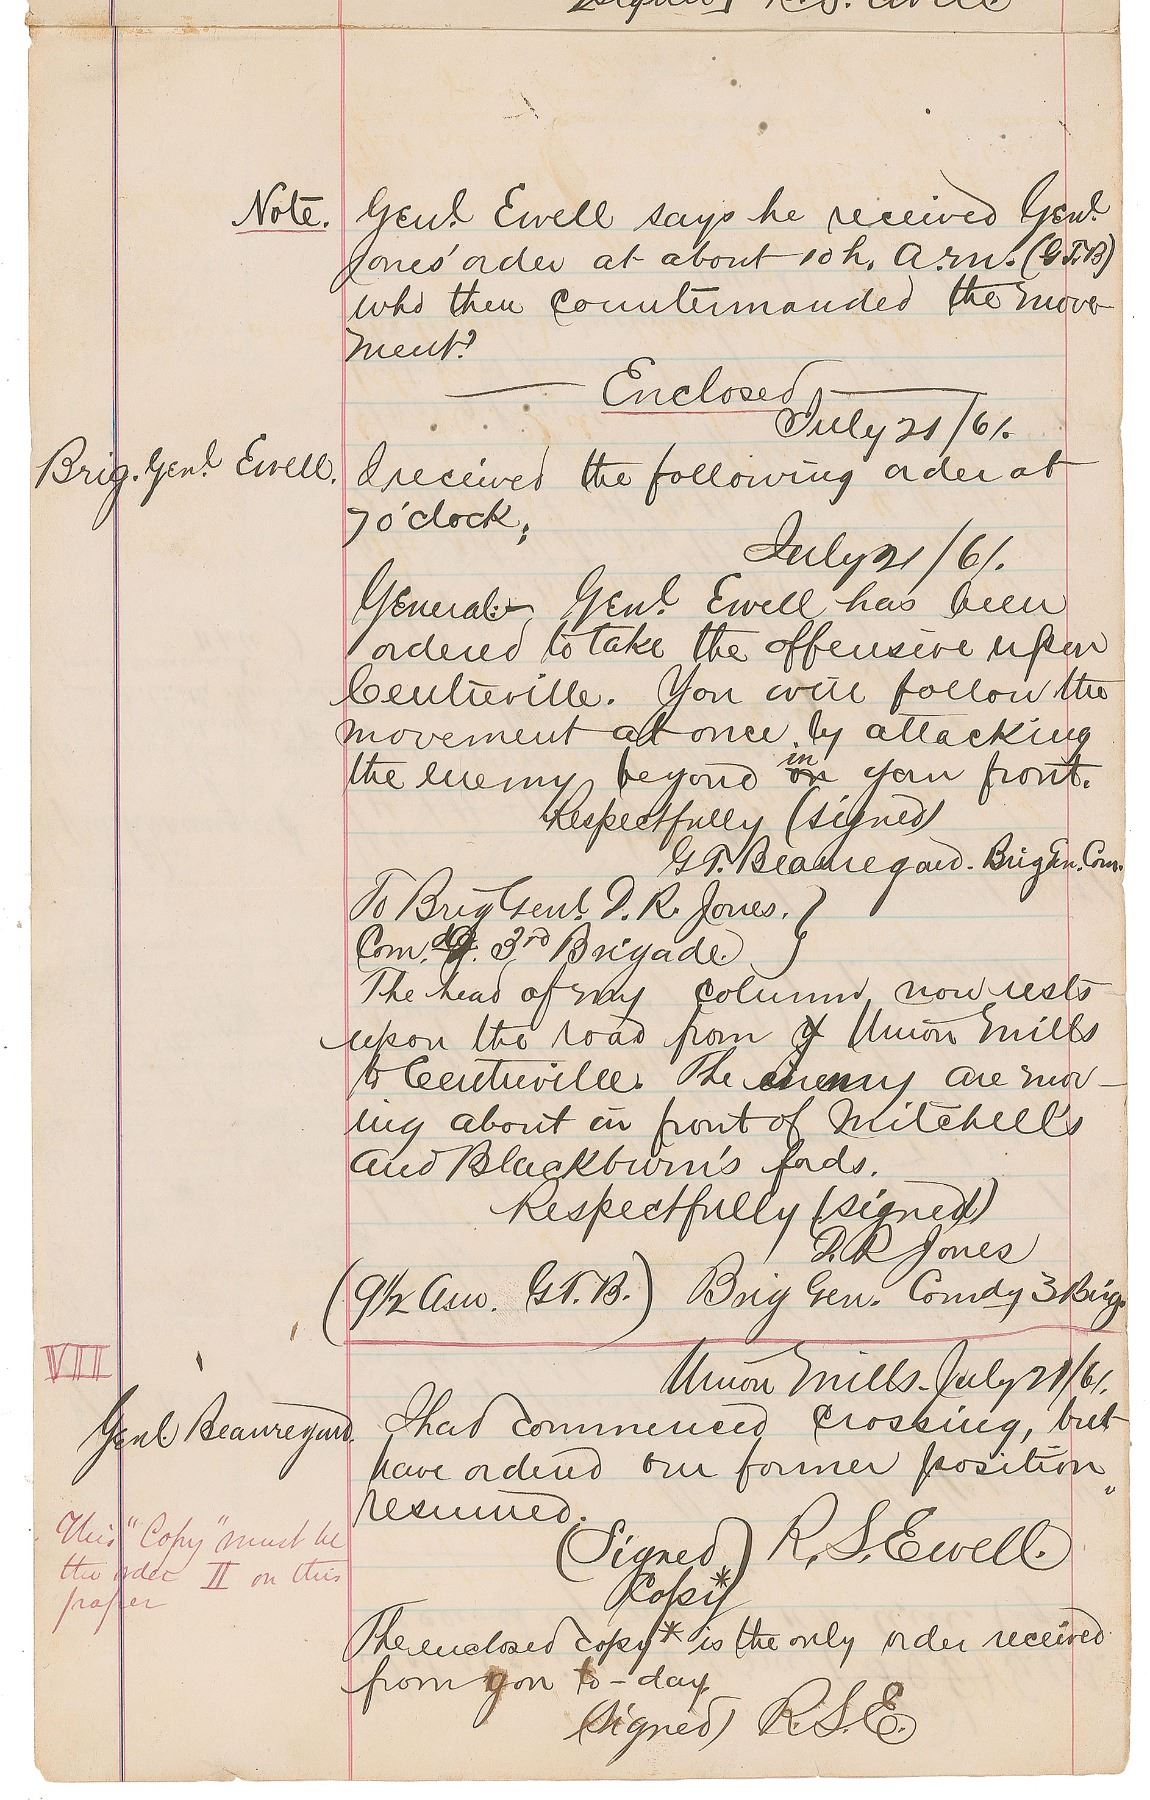 (signed) R. S. Ewell
Note. Genl. Ewell says he received Genl.
Jones' order at about 10 h. a.m. (G.T.B)
who then countermanded the move-
ment?
Enclosed
July 21/61.
Brig. Genl. Ewell. I received the following order at
7 o'clock;
July 21/61.
General:- Genl. Ewell has been
ordered to take the offensive upon
Centreville. You will follow the
movement at once by attacking
in
the enemy beyond on your front.
Respectfully (signed)
G.T. Beauregard. Brig Gn. Com.
To Brig Genl. D. R. Jones.
Com. dg. 3rd Brigade.
The head of my column now rests
upon the road from Union Mills
to Centreville. The enemy are mov-
ing about in front of Mitchell's
and Blackburn's fords.
Respectfully (signed)
D. R Jones
(9½ am. G.T.B.) Brig Gen. Comdg 3 Brig.
VII
Union Mills. July 21/61.
Genl Beauregard. I had commenced crossing, but
have ordered our former position
resumed.
(Signed) R. S. Ewell.
This "Copy" must be
the order II on this
paper
Copy*
The enclosed copy* is the only order received
from you to-day
(signed) R.S.E.